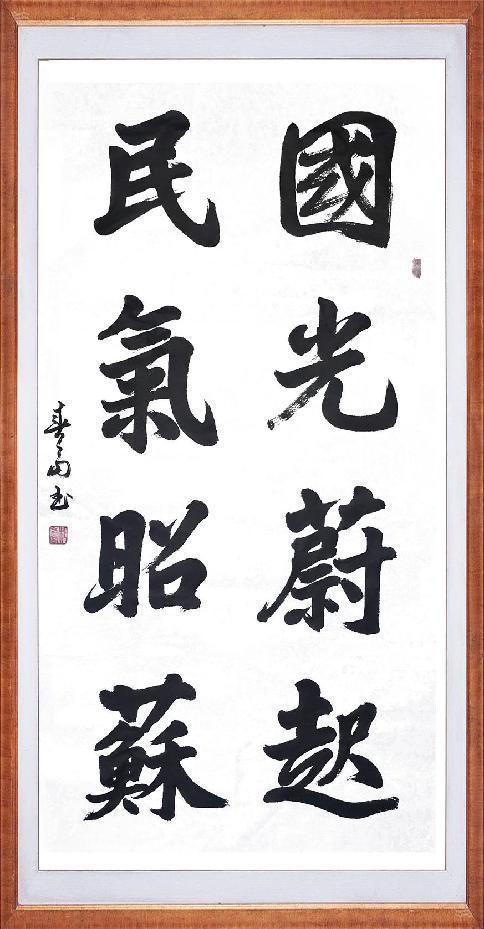 國光蔚起
民氣昭蘇
書